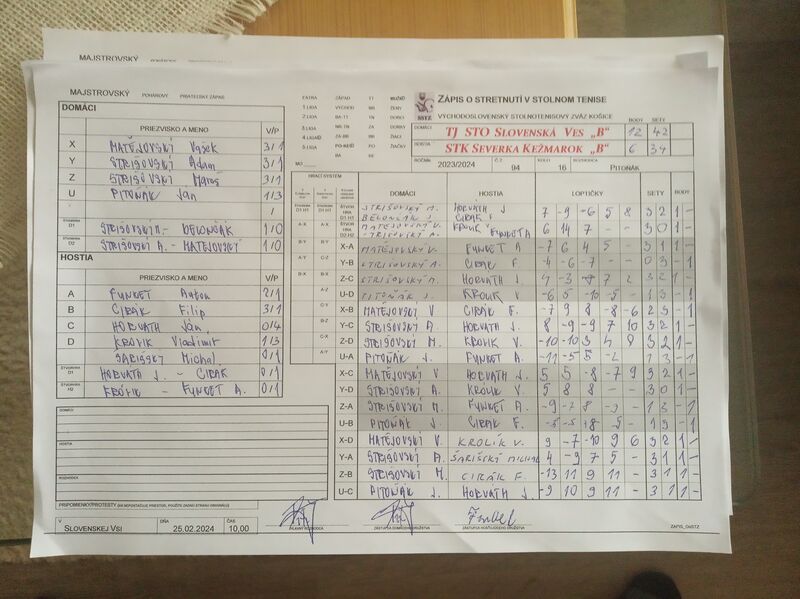 MAJSTROVSKÝ
MAJSTROVSKÝ POHÁROVÝ PRIATEĽSKÝ ZÁPAS
DOMÁCI
PRIEZVISKO A MENO V/P
X MATĚJOVSKÝ Vašek 3/1
Y STRISOVSKÝ Adam 3/1
Z STRISOVSKÝ Maroš 3/1
U PITOŇÁK Ján 1/3
/
D1 STRISOVSKÝ M. - BELONŽÁK 1/0
D2 STRISOVSKÝ A. - MATĚJOVSKÝ 1/0
HOSTIA
PRIEZVISKO A MENO V/P
A FUNKET Anton 2/1
B CIRÁK Filip 3/1
C HORVATH Ján 0/4
D KROLIK Vladimír 1/3
ŠARIŠSKÝ Michal 0/1
H1 HORVATH J. - CIRÁK 0/1
H2 KROLIK - FUNKET A. 0/1
DOMÁCI
HOSTIA
ROZHODCA
PRIPOMIENKY/PROTESTY
V SLOVENSKEJ VSI DŇA 25.02.2024 ČAS 10,00
EXTRA ZÁPAD TT MUŽI
1.LIGA VÝCHOD NR ŽENY
2.LIGA BA-TT TN DORCI
3.LIGA NR-TN ZA DORKY
4.LIGA ZA-BB BB ŽIACI
5.LIGA PO-KE KE ŽIAČKY
SSTZ
ZÁPIS O STRETNUTÍ V STOLNOM TENISE
VÝCHODOSLOVENSKÝ STOLNOTENISOVÝ ZVÄZ KOŠICE
BODY SETY
DOMÁCI TJ STO SLOVENSKÁ VES „B" 12 42
HOSTIA STK SEVERKA KEŽMAROK „B" 6 34
ROČNÍK 2023/2024 Č.Z. 94 KOLO 16 ROZHODCA PITONÁK
HRACÍ SYSTÉM
DOMÁCI HOSTIA LOPTIČKY SETY BODY
STRISOVSKÝ M. BELONŽÁK J. HORVATH J. CIRÁK F. 7 -9 -6 5 8 3 2 1 -
MATĚJOVSKÝ V. STRISOVSKÝ A. KROLIK V. FUNKET A 6 14 7 - - 3 0 1 -
X-A MATĚJOVSKÝ V. FUNKET A -7 6 4 5 - 3 1 1 -
Y-B STRISOVSKÝ A. CIRÁK F. -4 -6 -7 - - 0 3 - 1
Z-C STRISOVSKÝ M. HORVATH J. 4 -3 -8 7 2 3 2 1 -
U-D PITOŇÁK J. KROLIK V -6 5 -10 -5 - 1 3 - 1
X-B MATĚJOVSKÝ V. CIRÁK F. -7 9 8 -8 -6 2 3 - 1
Y-C STRISOVSKÝ A. HORVATH J. 8 -9 -9 7 10 3 2 1 -
Z-D STRISOVSKÝ M. KROLIK V. -10 -10 3 4 8 3 2 1 -
U-A PITOŇÁK J. FUNKET A. -11 -5 5 -2 1 3 - 1
X-C MATĚJOVSKÝ V HORVATH J. 5 5 -8 -7 9 3 2 1 -
Y-D STRISOVSKÝ A. KROLIK V. 5 8 8 - - 3 0 1 -
Z-A STRISOVSKÝ M. FUNKET A. -9 -7 8 -3 - 1 3 - 1
U-B PITOŇÁK J. CIRÁK F. 1 3 - 1
X-D MATĚJOVSKÝ V. KROLÍK V. 9 -7 -10 9 6 3 2 1 -
Y-A STRISOVSKÝ A. ŠARIŠSKÝ MICHAL 4 -9 7 5 - 3 1 1 -
Z-B STRISOVSKÝ M. CIRÁK F. -13 11 9 11 - 3 1 1 -
U-C PITOŇÁK J. HORVATH J. -9 10 9 11 - 3 1 1 -
ZÁSTUPCA HOSŤUJÚCEHO DRUŽSTVA
ZAPIS_OaSTZ